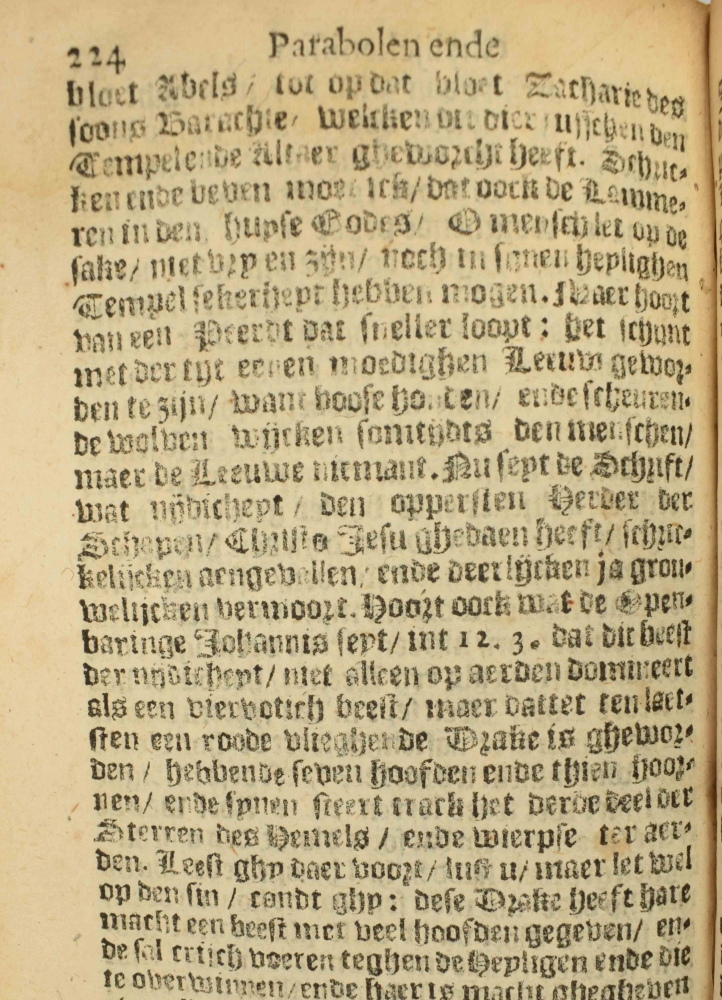 224 Parabolen ende
bloet Abels / tot op dat bloet Zacharie des
soons Barachie / welcken ghy tusschen den
Tempel ende Altaer ghewozcht heeft. Schric-
ken ende beven moet ick / dat oock de Lamme-
ren in den huyse Godes / O mensch let op de
sake / niet vzy en zijn / noch in synen heylighen
Tempel sekerheyt hebben mogen. Maer hoozt
van een Peerdt dat sneller loopt : het schijnt
met der tijt eenen moedighen Leeuw gewoz-
den te zijn / want boose honden / ende scheuren-
de wolven wijcken somtydts den menschen /
maer de Leeuwe niemant. Nu seyt de Schzift /
wat nijdicheyt / den oppersten Herder der
Schapen / Chzisto Jesu ghedaen heeft / schzic-
kelijcken aengevallen, ende deerlijcken ja grou-
welijcken vermoozt. Hoozt oock wat de Open-
baringe Johannis seyt / int 12. 3. dat dit beest
der nijdicheyt / niet alleen op aerden domineert
als een viervotich beest / maer dattet ten laet-
sten een roode vlieghende Dzake is ghewoz-
den / hebbende seven hoofden ende thien hooz-
nen / ende synen steert track het derde deel der
Sterren des Hemels / ende wierpse ter aer-
den. Leest ghy daer voozt / lust u / maer let wel
op den sin / condt ghy : dese Dzake heeft hare
macht een beest met veel hoofden gegeven / en-
de sal crijch voeren teghen de Heyligen ende die
te overwinnen / ende haer is macht ghegheven